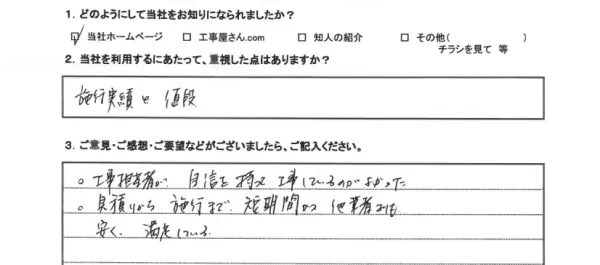 1. どのようにして当社をお知りになられましたか？
☑ 当社ホームページ □ 工事屋さん.com □ 知人の紹介 □ その他( )
チラシを見て 等
2. 当社を利用するにあたって、重視した点はありますか？
施行実績と値段
3. ご意見・ご感想・ご要望などがございましたら、ご記入ください。
○ 工事担当者が、自信を持って工事しているのがよかった
○ 見積りから施行まで、短期間かつ他業者よりも
安く、満足している